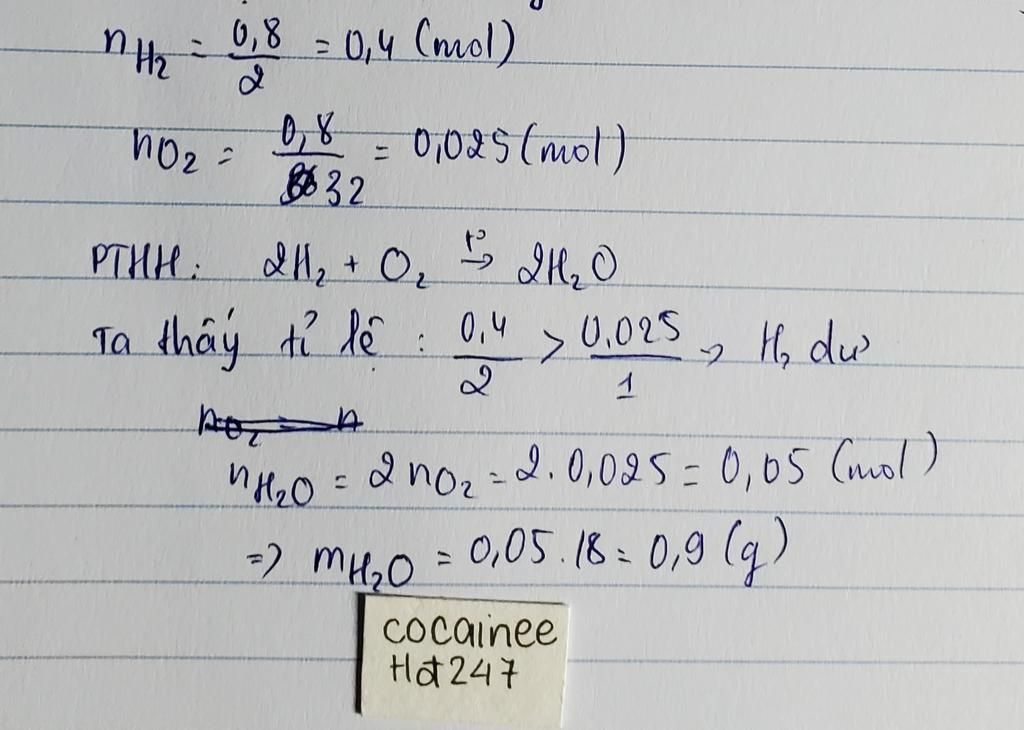 nH₂ = 0,8/2 = 0,4 (mol)
nO₂ = 0,8/32 = 0,025 (mol)
PTHH: 2H₂ + O₂ t° → 2H₂O
Ta thấy tỉ lệ : 0,4/2 > 0,025/1 → H₂ dư
nH₂O = 2nO₂ = 2.0,025 = 0,05 (mol)
=> mH₂O = 0,05.18 = 0,9 (g)
cocainee
Hot247